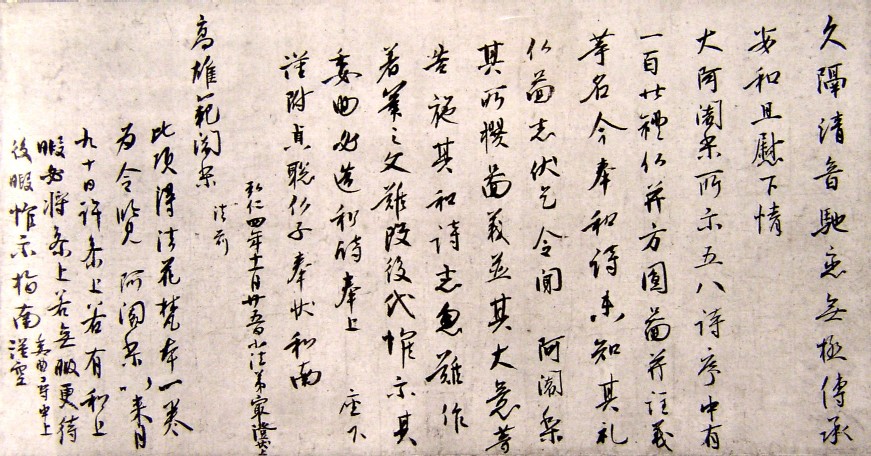 久隔清音馳恋無極傳承
安和且慰下情
大阿闍梨所示五八詩序中有
一百廿禮仏并方圓圖并註義
等名今奉和詩未知其礼
仏圖者伏乞令聞 阿闍梨
其所撰圖義並其大意等
告施其和詩者忽難作
著筆之文難改後代惟示其
委曲必造和詩奉上 座下
謹附貞聡仏子奉状和南
弘仁四年十一月廿五日小法弟最澄状上
高雄範闍梨
法前
此頃得法花梵本一巻
為令覧 阿闍梨以来月
九十日許参上若有和上
暇必将参上若無暇更待
後暇惟示指南謹空